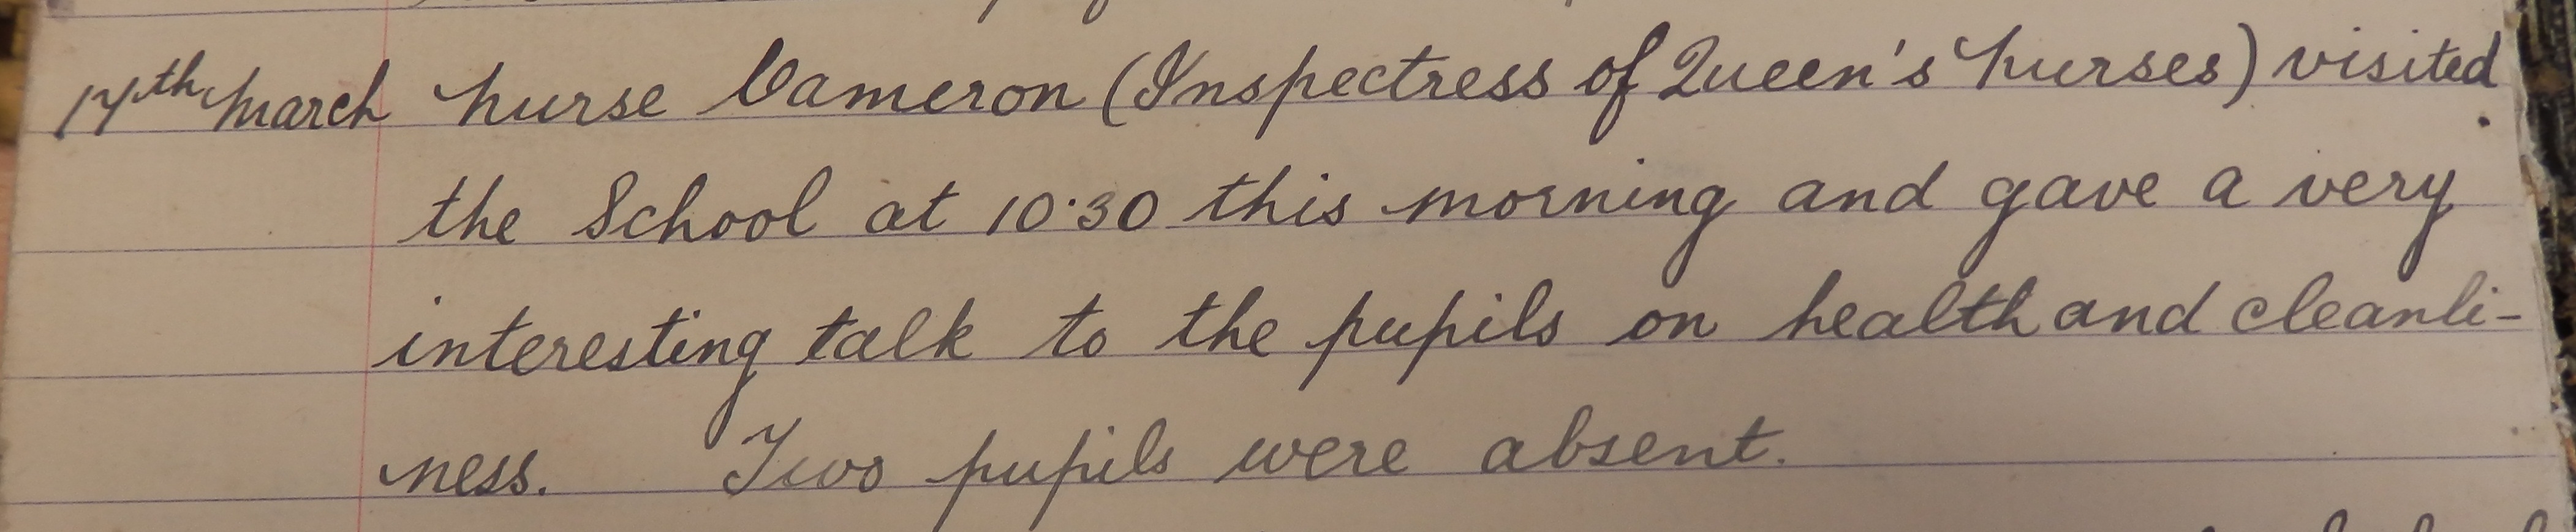 14th March Nurse Cameron (Inspectress of Queen's Nurses) visited
the School at 10·30 this morning and gave a very
interesting talk to the pupils on health and cleanli-
ness. Two pupils were absent.